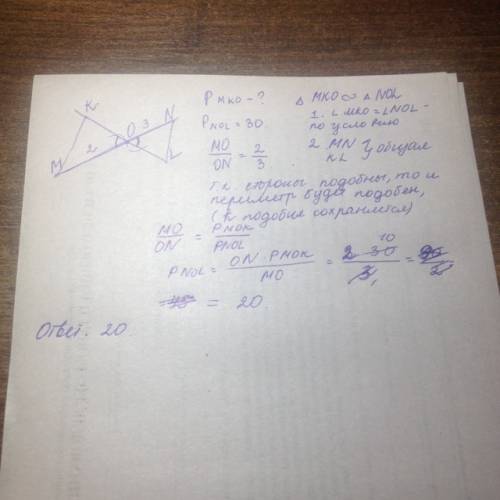 K
N
O
3
2
M
L
P MKO - ?
P NOL = 30
MO/ON = 2/3
△ MKO ∞ △ NOL
1. ∠ MKO = ∠ NOL -
по условию
2 MN } общая
KL
т.к. стороны подобны, то и
периметр будет подобен,
(к подобия сохраняется)
MO/ON = P MOK/P NOL
P NOL = ON · P MOK / MO = 2 · 30 / 3 =
10
1
= 20
Ответ. 20